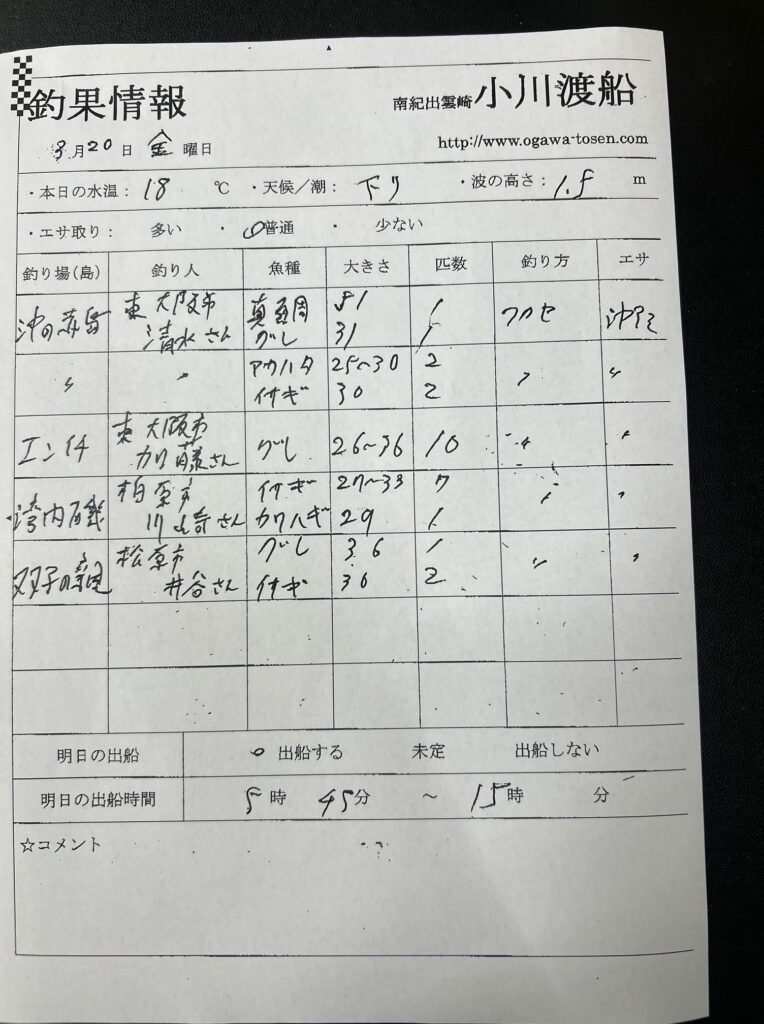 釣果情報
南紀出雲崎 小川渡船
3月20日 金曜日
http://www.ogawa-tosen.com
・本日の水温： 18 ℃ ・天候／潮： 下り ・波の高さ： 1.5 m
・エサ取り： 多い ・ 普通 ・ 少ない
釣り場（島） 釣り人 魚種 大きさ 匹数 釣り方 エサ
沖の赤島 東大阪市 清水さん 真鯛 81 1 フカセ
グレ 31 1
〃 〃 アカハタ 25〜30 2 〃 〃
イサギ 30 2
エンイチ 東大阪市 加藤さん グレ 26〜36 10 〃 〃
湾内磯 柏原市 川崎さん イサギ 27〜33 7 〃 〃
カワハギ 29 1
双子の親 松原市 井谷さん グレ 36 1 〃 〃
イサギ 30 2
明日の出船 出船する 未定 出船しない
明日の出船時間 5時 45分 〜 15時 分
☆コメント